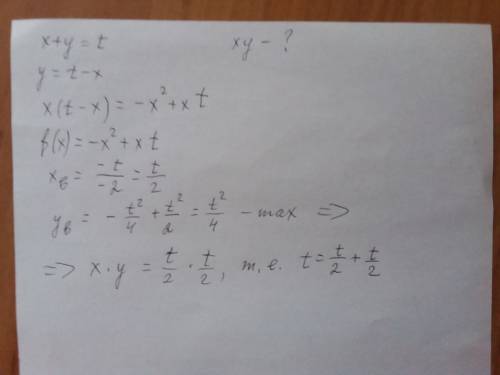 x+y=t xy - ?
y=t-x
x(t-x)=-x²+xt
f(x)=-x²+xt
x_в = -t/-2 = t/2
y_в = -t²/4 + t²/2 = t²/4 - max =>
=> x·y = t/2 · t/2, т.е. t = t/2 + t/2